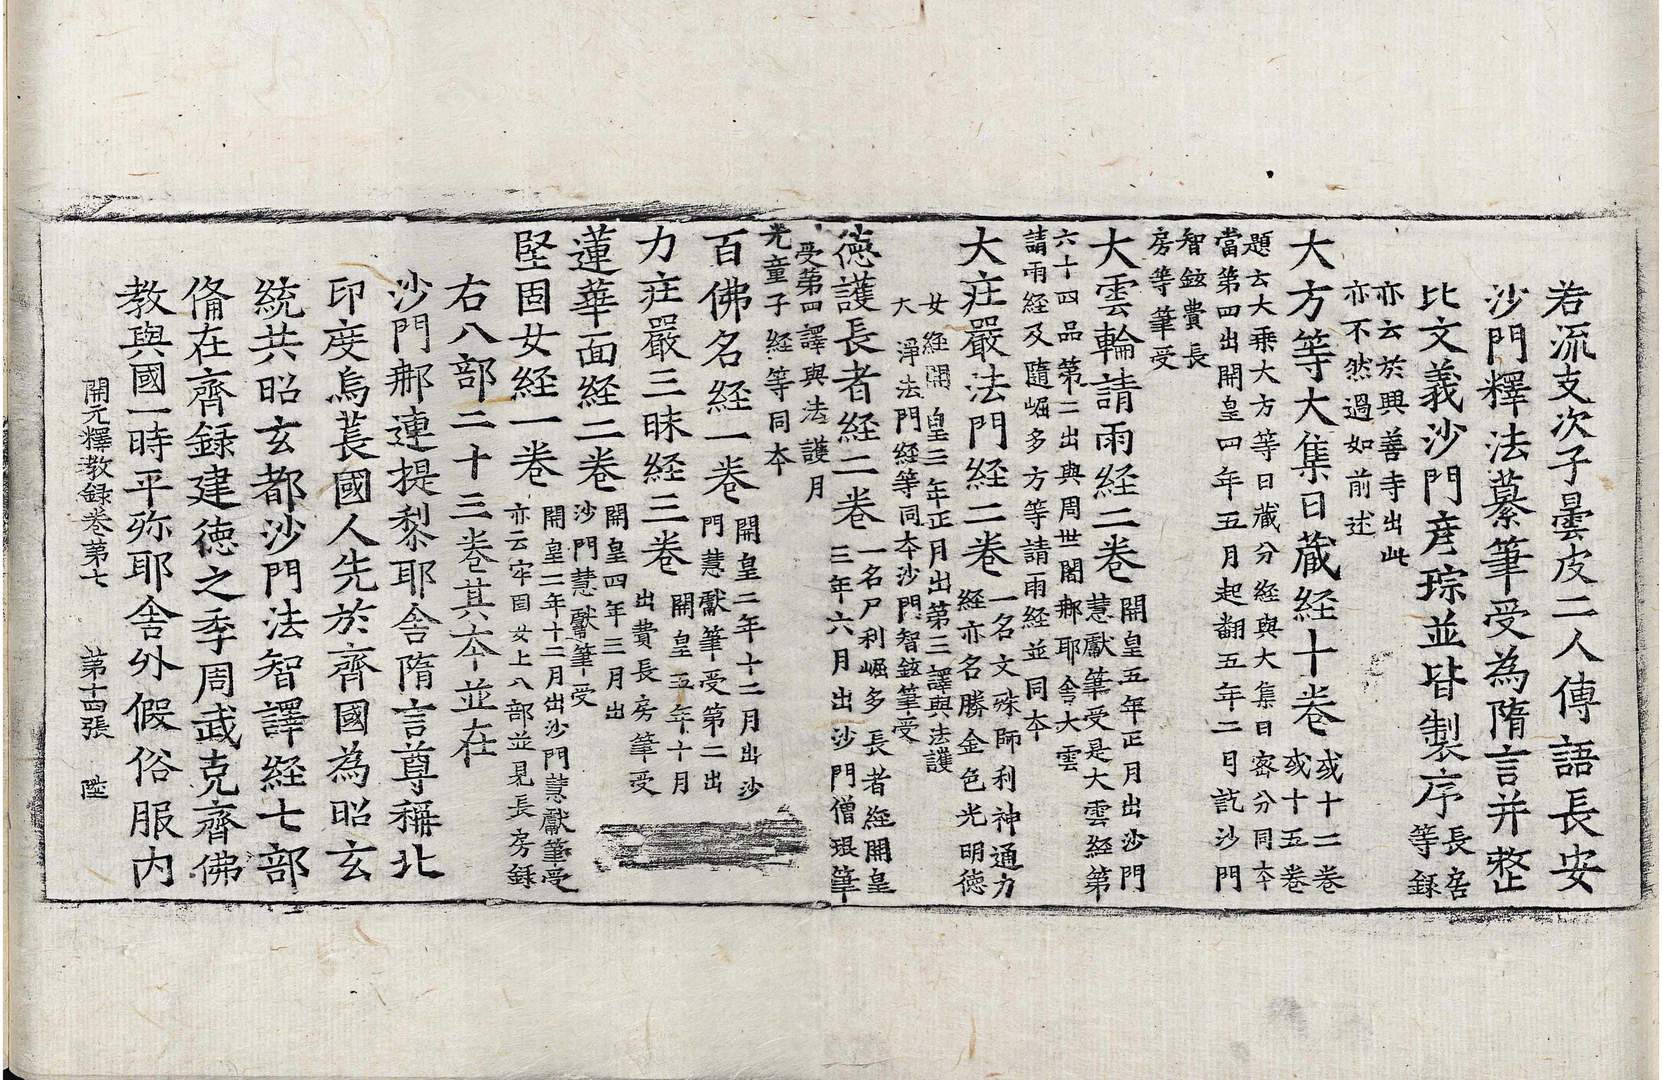 若流支次子曇皮二人傳語長安
沙門釋法纂筆受為隋言并整
比文義沙門彦琮並皆製序長房
等錄
亦云於興善寺出此
亦不然過如前述
大方等大集日蔵経十卷或十二卷
或十五卷
題云大乘大方等日蔵分経與大集日密分同夲
當第四出開皇四年五月起翻五年二月訖沙門
智鉉費長
房等筆受
大雲輪請雨経二卷開皇五年正月出沙門
慧獻筆受是大雲経第
六十四品第二出與周世闍𨚗耶舍大雲
請雨経及隨崛多方等請雨経並同夲
大庄嚴法門経二卷一名文殊師利神通力
経亦名勝金色光明徳
女経開皇三年正月出第三譯與法護
大淨法門経等同夲沙門智鉉筆受
徳護長者経二卷一名尸利崛多長者経開皇
三年六月出沙門僧琨筆
受第四譯與法護月
光童子経等同夲
百佛名経一卷開皇二年十二月出沙
門慧獻筆受第二出
力庄嚴三昧経三卷開皇五年十月
出費長房筆受
蓮華面経二卷開皇四年三月出
沙門慧獻筆受
堅固女経一卷開皇二年十二月出沙門慧獻筆受
亦云牢固女上八部並見長房錄
右八部二十三卷其夲並在
沙門𨚗連提黎耶舍隋言尊稱北
印度烏萇國人先於齊國為昭玄
統共昭玄都沙門法智譯経七部
俻在齊錄建徳之季周武克齊佛
教與國一時平弥耶舍外假俗服内
開元釋教録卷第七 第十四張 陞